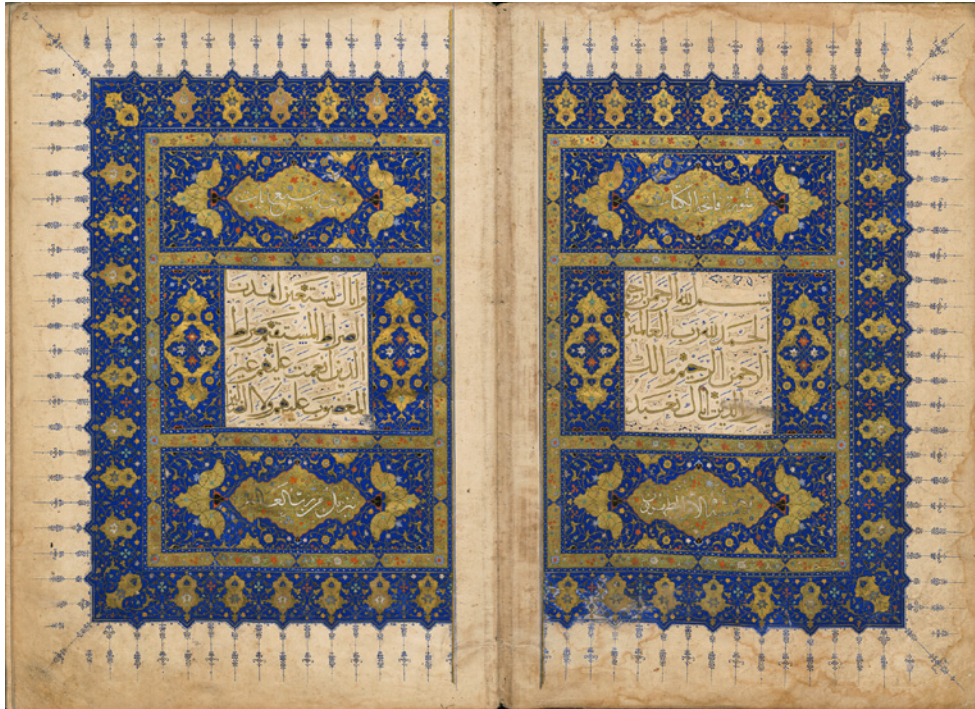 سورة فاتحة الكتاب
بسم الله الرحمن الرحيم
الحمد لله رب العالمين
الرحمن الرحيم مالك
يوم الدين اياك نعبد
الا المطهرون
سبع ايات
واياك نستعين اهدنا
الصراط المستقيم صراط
الذين انعمت عليهم غير
المغضوب عليهم ولا الضالين
تنزيل من رب العالمين